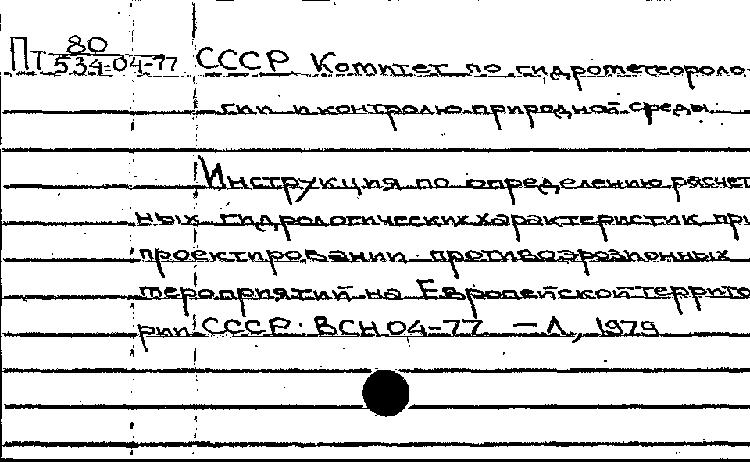 Пт 80/534-04-77 СССР Комитет по гидрометеороло-
гии и контролю природной среды.
Инструкция по определению расчет
ных гидрологических характеристик при
проектировании противоэрозионных
мероприятий на Европейской террито
рии СССР. ВСН 04-77 — Л, 1979